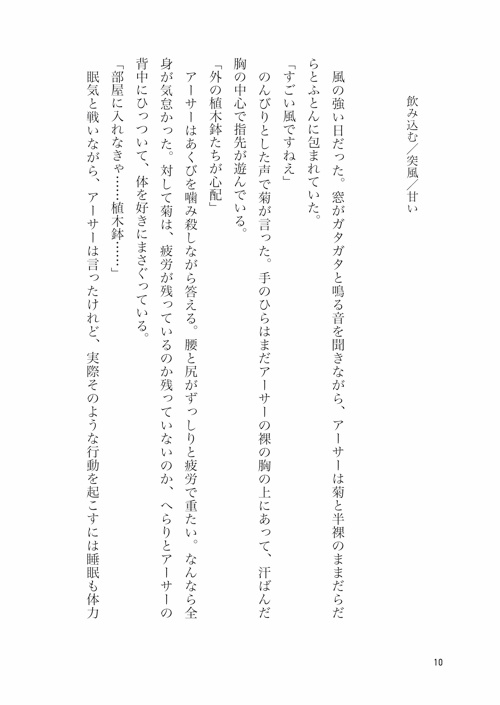 飲み込む／突風／甘い
風の強い日だった。窓がガタガタと鳴る音を聞きながら、アーサーは菊と半裸のままだらだ
らとふとんに包まれていた。
「すごい風ですねえ」
のんびりとした声で菊が言った。手のひらはまだアーサーの裸の胸の上にあって、汗ばんだ
胸の中心で指先が遊んでいる。
「外の植木鉢たちが心配」
アーサーはあくびを噛み殺しながら答える。腰と尻がずっしりと疲労で重たい。なんなら全
身が気怠かった。対して菊は、疲労が残っているのか残っていないのか、へらりとアーサーの
背中にひっついて、体を好きにまさぐっている。
「部屋に入れなきゃ……植木鉢……」
眠気と戦いながら、アーサーは言ったけれど、実際そのような行動を起こすには睡眠も体力
10